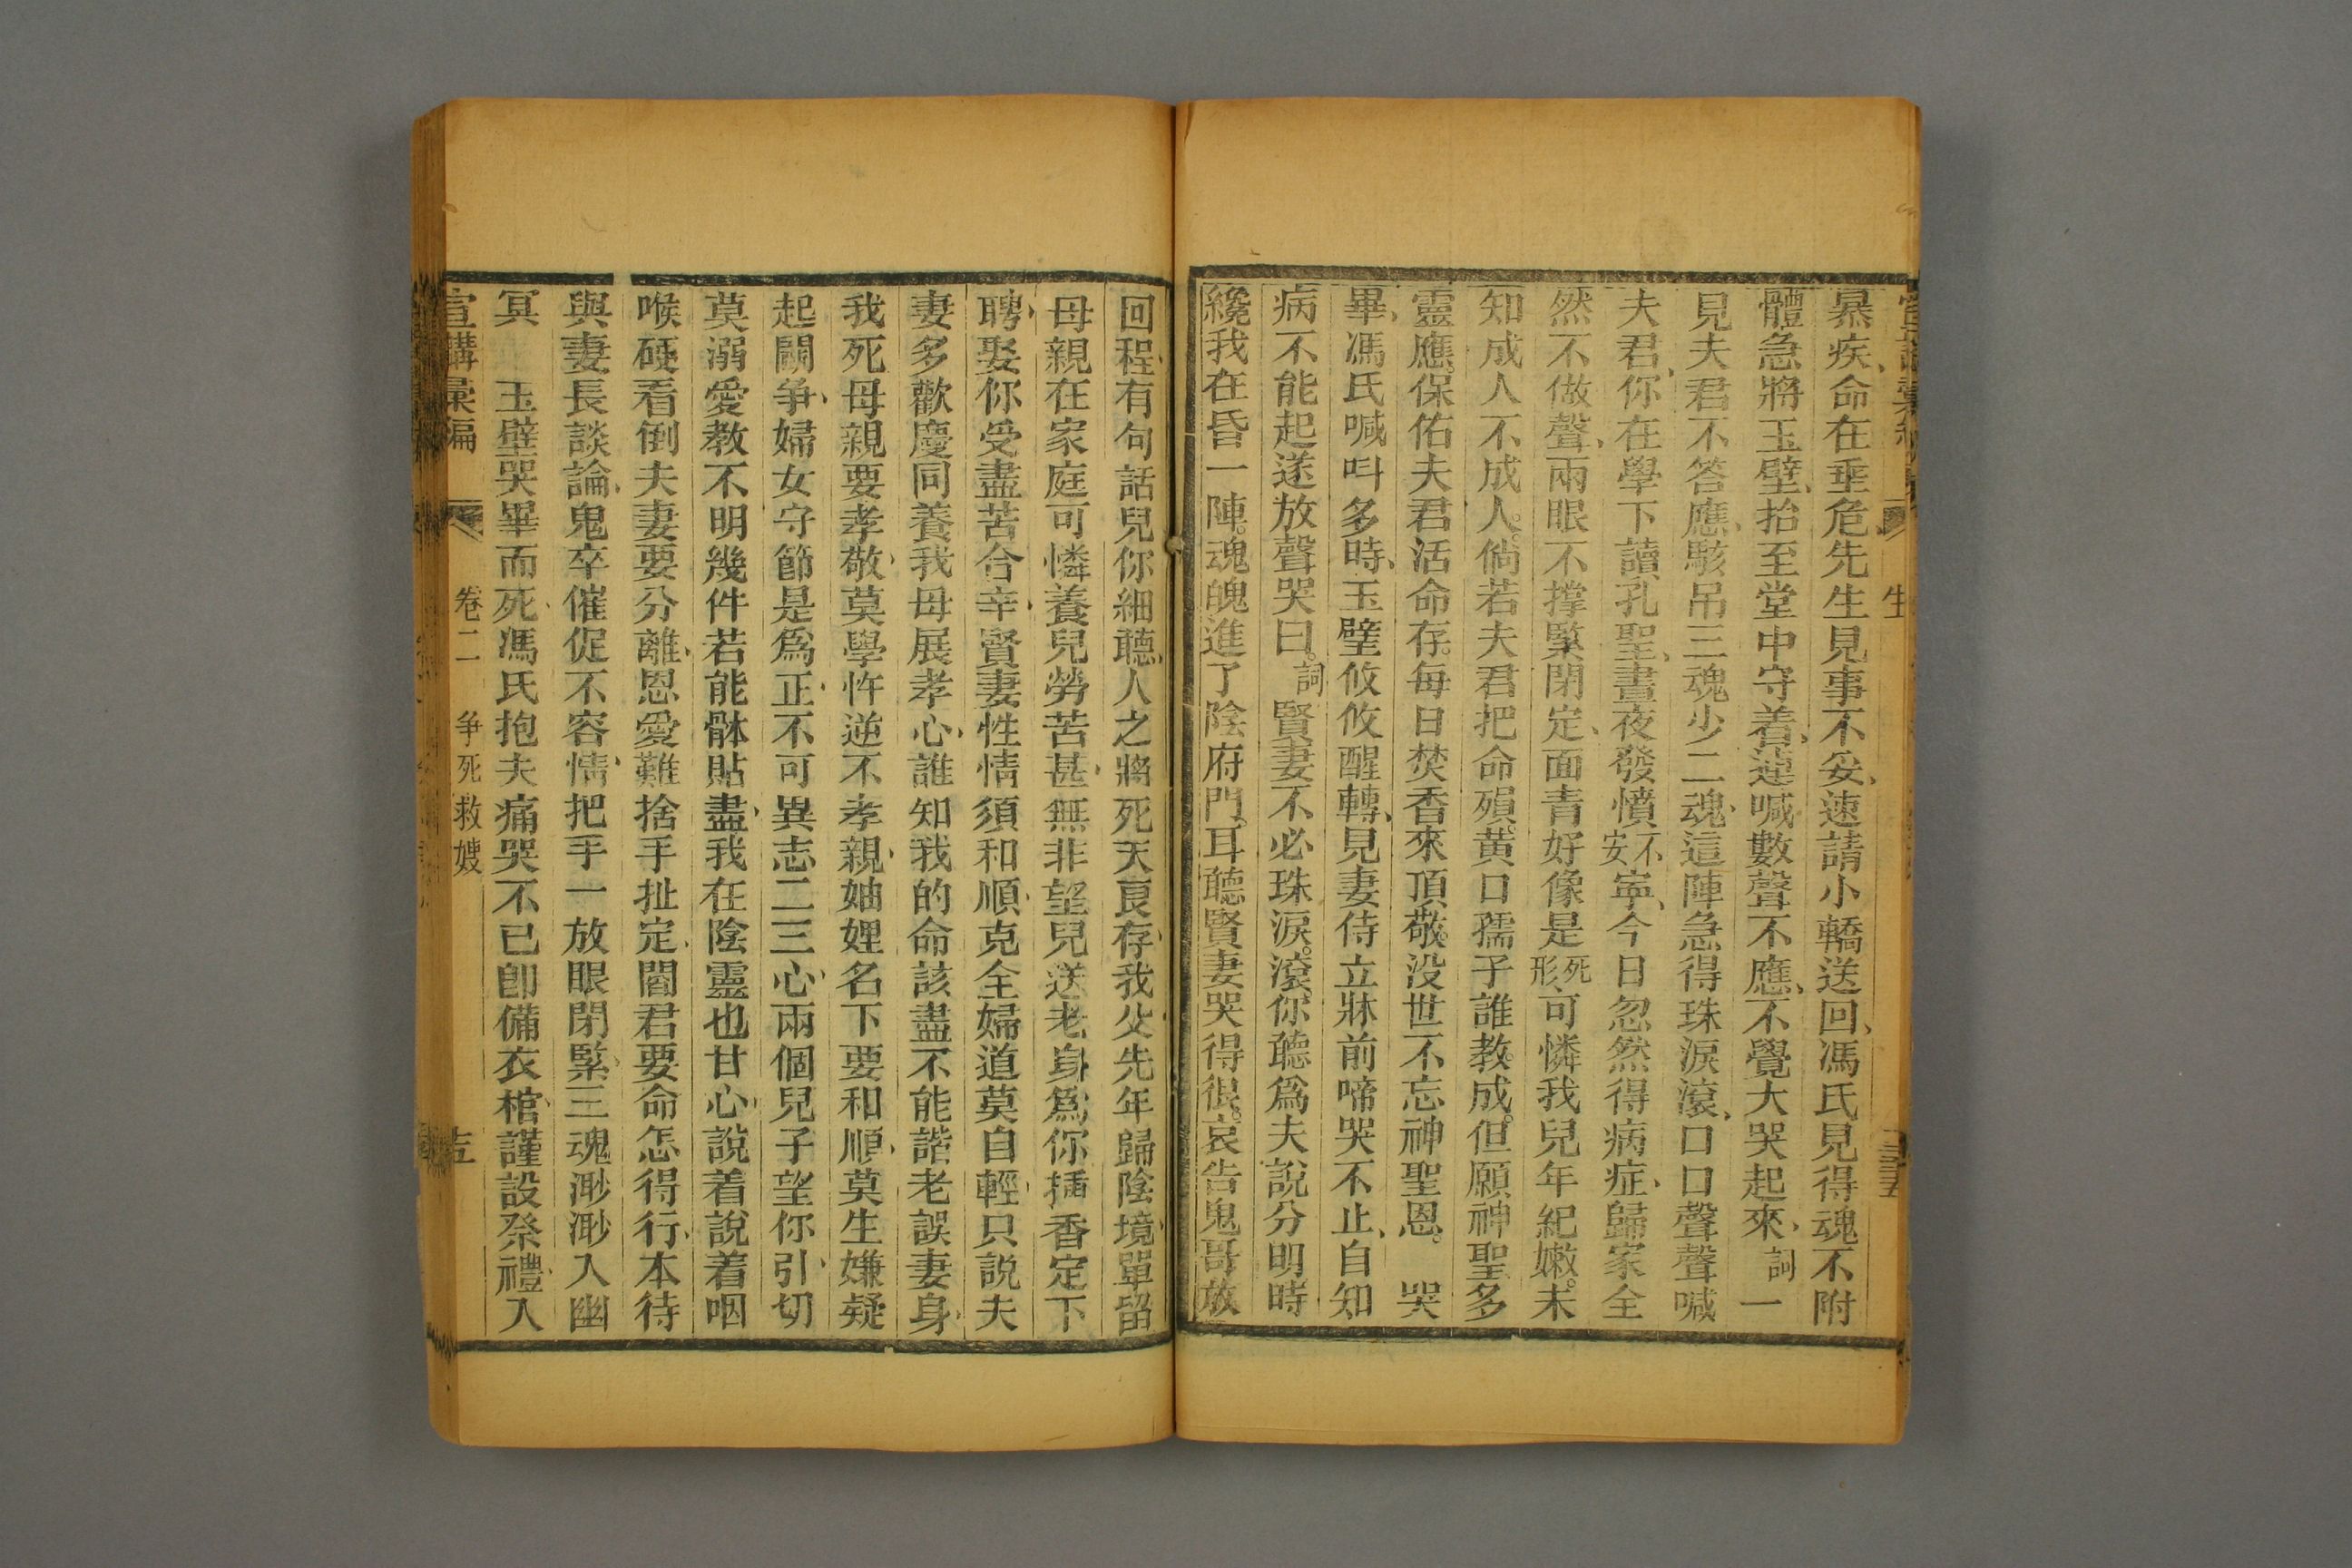 暴疾、命在垂危先生見事不妥、速請小轎送回、馮氏見得魂不附
體急將玉壁、抬至堂中守着、連喊數聲不應、不覺大哭起來、詞一
見夫君不答應、駭吊三魂少二魂、這陣急得珠淚滾、口口聲聲喊
夫君、你在學下讀孔聖、晝夜發憤不安寧、今日忽然得病症、歸家全
然不做聲、兩眼不撑緊閉定、面青好像是死形、可憐我兒年紀嫩。未
知成人不成人。倘若夫君把命殞。黄口孺子誰教成。但願神聖多
靈應。保佑夫君活命存。每日焚香來頂敬。没世不忘神聖恩。哭
畢、馮氏喊呌多時、玉壁攸攸醒轉、見妻侍立牀前啼哭不止、自知
病不能起遂放聲哭曰。詞賢妻不必珠淚。滾、你聽爲夫說分明時
纔我在昏一陣。魂魄進了陰府門。耳聽賢妻哭得很。哀告鬼哥放
回程、有句話兒你細聽、人之將死天良存、我父先年歸陰境、單留
母親在家庭可憐養兒勞苦甚、無非望兒送老身、爲你插香定下
聘、娶你受盡苦合辛、賢妻性情須和順、克全婦道莫自輕、只説夫
妻多歡慶同養我母展孝心、誰知我的命該盡不能諧老誤妻身、
我死母親要孝敬、莫學忤逆不孝親、妯娌名下要和順、莫生嫌疑
起鬬争、婦女守節是爲正、不可異志二三心、兩個兒子望你引、切
莫溺愛教不明幾件若能骵貼盡、我在陰靈也甘心、說着說着咽
喉硬看倒夫妻要分離、恩愛難捨手扯定、閻君要命怎得行、本待
與妻長談論、鬼卒催促不容情、把手一放眼閉緊、三魂渺渺入幽
冥　玉壁哭畢而死、馮氏抱夫痛哭不已卽備衣棺、謹設祭禮、入
宣講彙編　卷二　争死救嫂